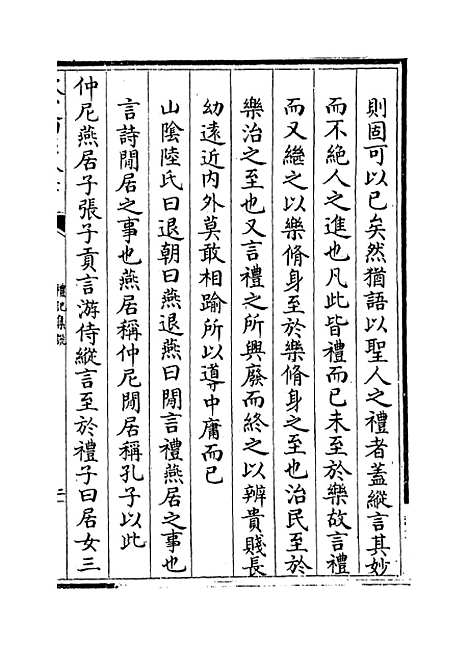 則固可以已矣然猶語以聖人之禮者蓋縱言其妙
而不絶人之進也凡此皆禮而已未至於樂故言禮
而又繼之以樂脩身至於樂脩身之至也治民至於
樂治之至也又言禮之所興廢而終之以辨貴賤長
幼遠近内外莫敢相踰所以導中庸而已
山陰陸氏曰退朝曰燕退燕曰閒言禮燕居之事也
言詩閒居之事也燕居稱仲尼閒居稱孔子以此
仲尼燕居子張子貢言游侍縱言至於禮子曰居女三
禮記集說